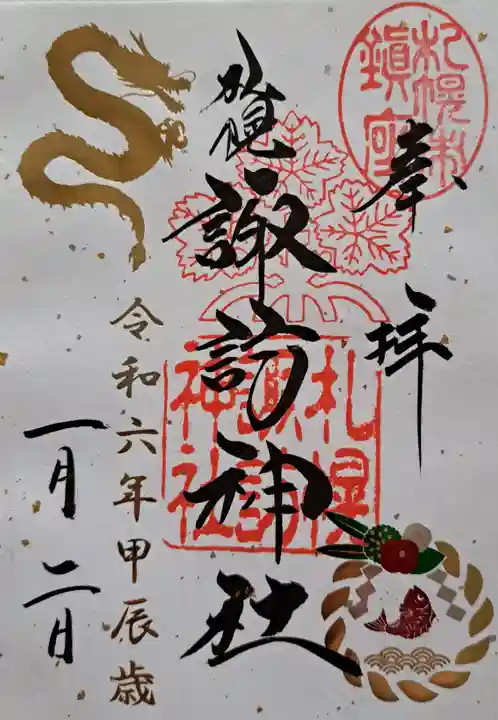 札幌村
鎮座
奉拝
札幌
諏訪神社
札幌
諏訪
神社
令和六年甲辰歳
一月二日